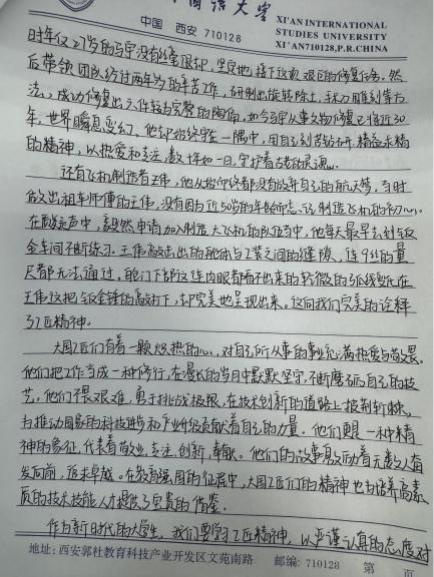 国语大学
XI'AN INTERNATIONAL
STUDIES UNIVERSITY
中国 西安 710128
XI'AN710128,P.R.CHINA
时年仅27岁的马宇没有丝毫退却,坚定地接下这款艰巨的修复任务。然
后带领团队经过两年多的辛苦工作,研制出旋转除土、
法,成功修复出六件较为完整的陶俑,如今马宇从事文物修复已将近30
年,世界瞬息变幻,他却始终守在一隅中,用自己刻苦钻研,精益求精
的精神,以热爱和专注,数十年如一日,守护着古老的灵魂。
还有飞机制造者王伟,他从始至终都没有放弃自己的航天梦,当时
做出租车师傅的王伟,没有因为近50岁的年龄而忘记制造飞机的初心。
在质疑声中,毅然申请加入制造大飞机的队伍当中,他每天最早去到钣
金车间不断练习。王伟敲击出的舱体与工装之间的缝隙,连9丝的量
尺都无法通过,舱门下部这连肉眼看不出来的轻微的弧线就在
王伟这把钣金锤的敲打下,却完美地呈现出来。这向我们完美的诠释
了工匠精神。
大国工匠们有着一颗炽热的心,对自己所从事的事业充满热爱与敬畏。
他们把工作当成一种修行,在漫长的岁月中默默坚守,不断磨砺自己的技
艺,他们不畏艰难,勇于挑战极限,在技术创新的道路上披荆斩棘,
为推动国家的科技进步和产业升级贡献着自己的力量。他们更是一种精
神的象征,代表着敬业、专注、创新、奉献。他们的故事激励着无数人奋
发向前,追求卓越。在教育强国的征程中,大国工匠们的精神也为培养高素
质的技术技能人才提供了宝贵的借鉴。
作为新时代的大学生,我们要学习工匠精神,以严谨认真的态度对
地址:西安郭杜教育科技产业开发区文苑南路 邮编:710128 第 页